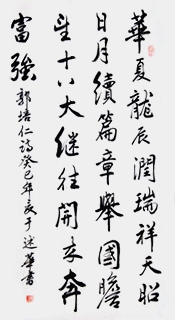 華夏龍辰潤瑞祥天昭
日月續篇章舉國瞻
望十八大继往開来奔
富強
郭培仁詩癸巳年于述華書